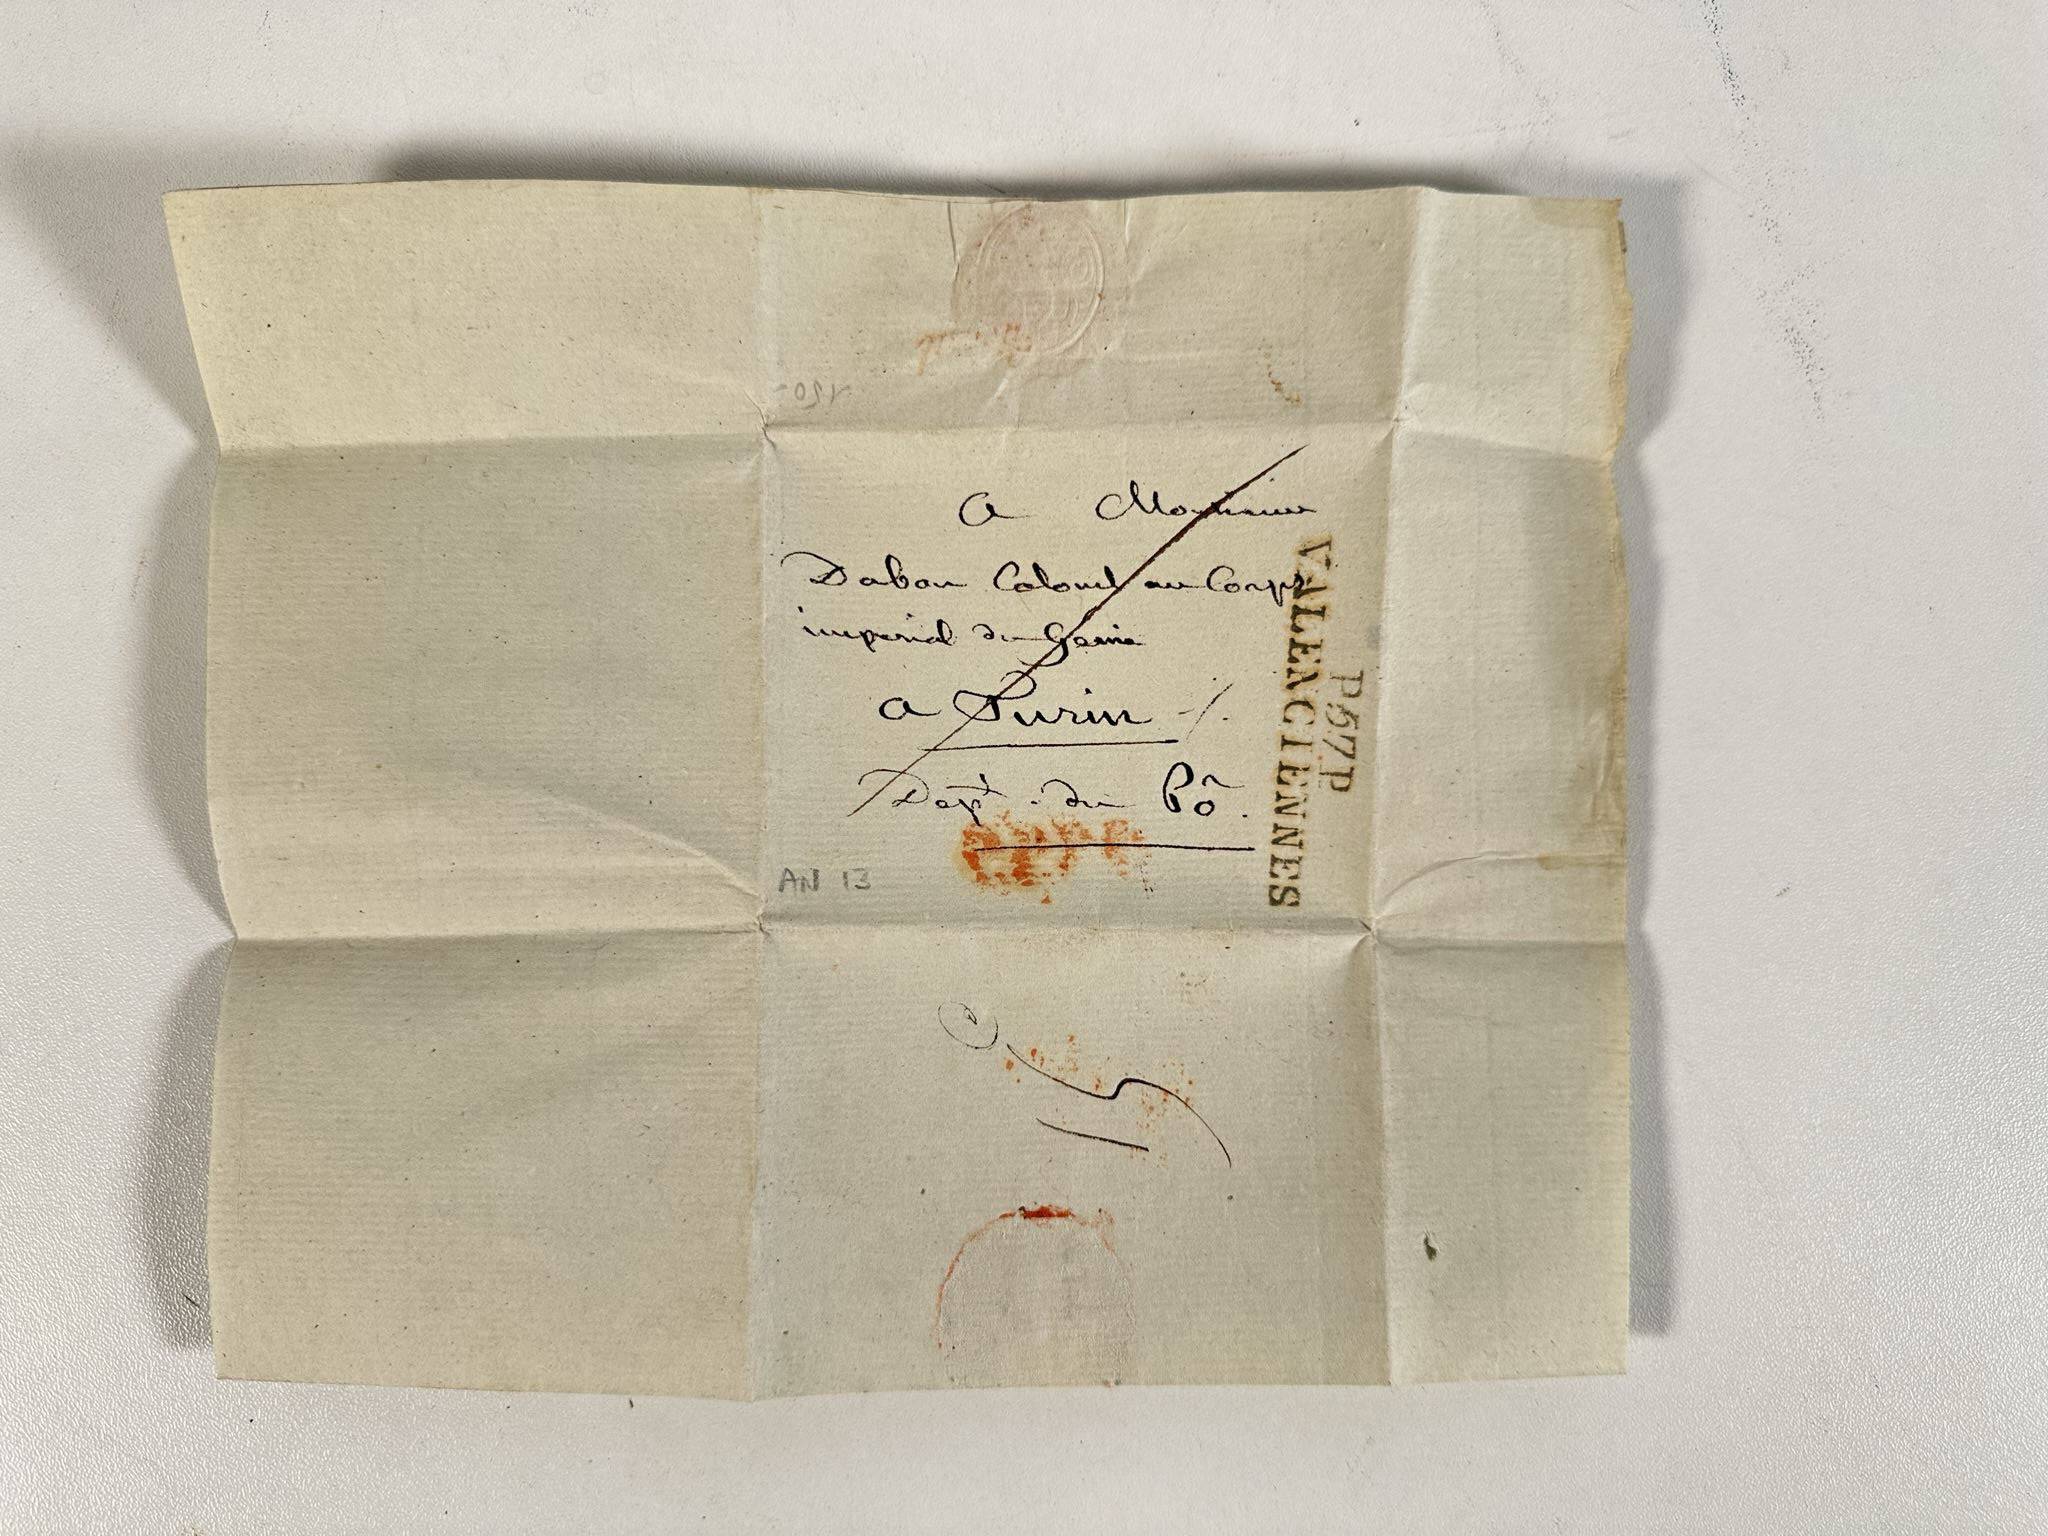 A Monsieur
Dabon Colonel au Corps
imperial du Genie
a Turin
Dept. du Pô.
P57P
VALENCIENNES
AN 13
150-